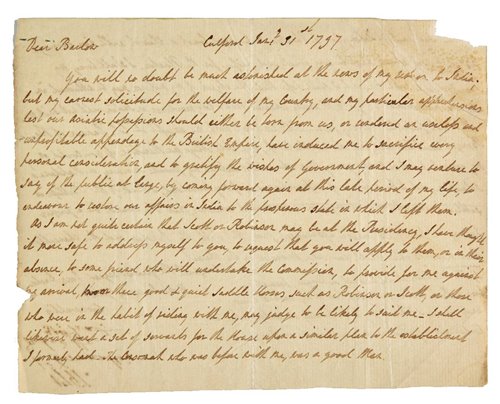 Dear Barlow Culford Jany. 31st. 1797
You will no doubt be much astonished at the news of my return to India.
but my earnest solicitude for the welfare of my Country, and my particular apprehensions
lest our Asiatic possessions should either be torn from us, or rendered an useless and
unprofitable appendage to the British Empire, have induced me to sacrifice every
personal consideration, and to gratify the wishes of Government, and I may venture to
say of the public at large, by coming forward again at this late period of my life, to
endeavour to restore our affairs in India to the prosperous state in which I left them.
As I am not quite certain that Scott or Robinson may be at the Presidency, I have thought
it more safe to address myself to you, to request that you will apply to them, or in their
absence, to some friend who will undertake the Commission, to provide for me against
my arrival, three good & quiet Saddle Horses such as Robinson or Scott, or those
who were in the habit of riding with me, may judge to be likely to suit me. I shall
likewise want a set of servants for the House upon a similar plan to the establishment
I formerly had. The Consomah who was before with me, was a good Man